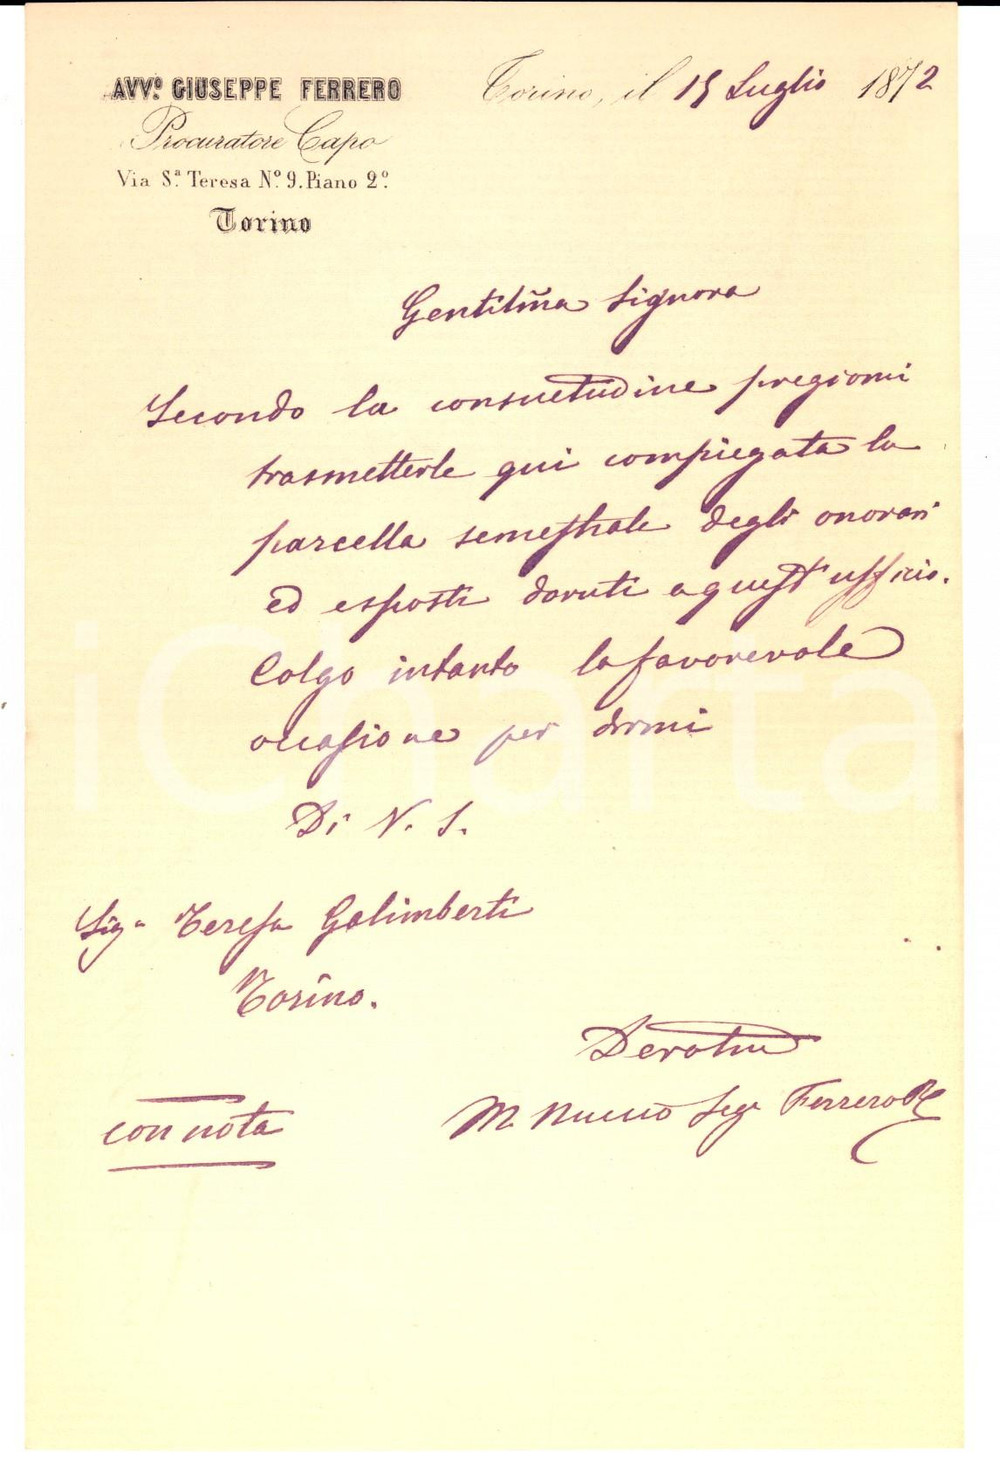 AVV.º GIUSEPPE FERRERO
Procuratore Capo
Via S.ª Teresa N.º 9. Piano 2.º
Torino
Torino, il 15 Luglio 1872
Gentilm̃a Signora
Secondo la consuetudine pregiomi
trasmetterle qui compiegata la
parcella semestrale degli onorari
ed esposti dovuti a quest'ufficio.
Colgo intanto la favorevole
occasione per dirmi
Di V. S.
Sig.a Teresa Galimberti
Torino.
Devotm̃o
M. Nucco Seg. Ferrero
con nota
iCharta